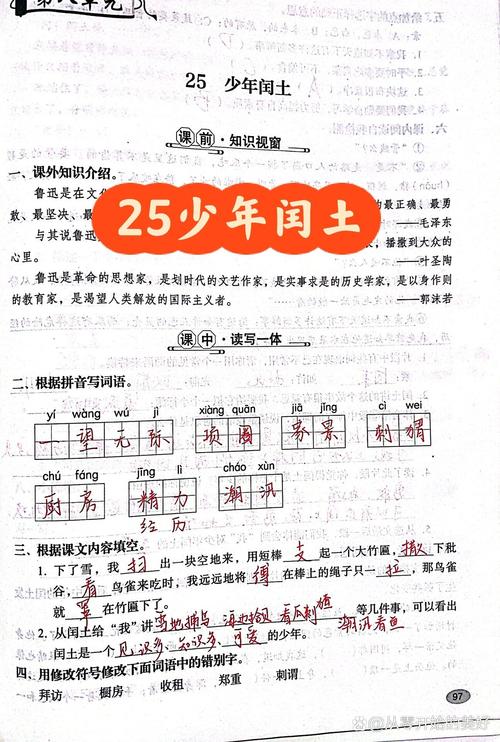 第八单元
25 少年闰土
课前·知识视窗
一、课外知识介绍。
鲁迅是在文化
25少年闰土
的最正确、最勇
敢、最坚决、最
——毛泽东
与其说鲁迅
播撒到大众的
心里。
——叶圣陶
鲁迅是革命的思想家,是划时代的文艺作家,是实事求是的历史学家,是以身作则
的教育家,是渴望人类解放的国际主义者。
——郭沫若
课中·读写一体
二、根据拼音写词语。
yí wàng wú jì xiàng quān jiā jǐng cì wei
一望无际 项圈 刺猬
chú fáng jīng lì cháo xùn
厨房 精力 潮汛
经历
三、根据课文内容填空。
1. 下了雪,我 扫 出一块空地来,用短棒 支 起一个大竹匾,撒 下秕
谷,看 鸟雀来吃时,我远远地将 缚 在棒上的绳子只一 拉 ,那鸟雀
就 罩 在竹匾下了。
2. 从闰土给“我”讲 雪地捕鸟 海边拾贝 看瓜刺猹 潮汛看鱼 等几件事,可以看出
闰土是一个 见识多、知识多、可爱 的少年。
四、用修改符号修改下面词语中的错别字。
拜访 橱房 收租 郑重 刺谓
97